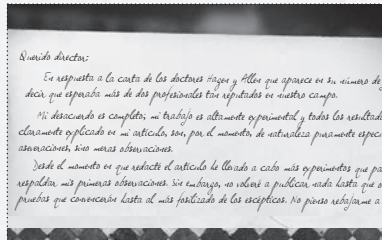 Querido director:
En respuesta a la carta de los doctores Hager y Aller que aparece en su número de
decir que esperaba más de dos profesionales tan reputados en nuestro campo.
Mi desacuerdo es completo; mi trabajo es altamente experimental y todos los resultado
claramente explicado en mi artículo, son, por el momento, de naturaleza puramente especu
aseveraciones, sino meras observaciones.
Desde el momento en que redacté el artículo he llevado a cabo más experimentos que pa
respaldar mis primeras observaciones. Sin embargo, no volveré a publicar nada hasta que o
pruebas que convencerán hasta al más fosilizado de los escépticos. No pienso rebajarme a